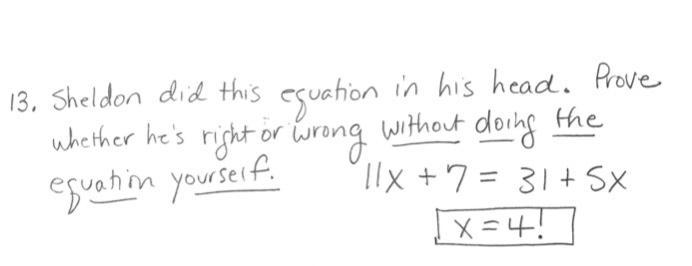 13. Sheldon did this equation in his head. Prove
whether he's right or wrong without doing the
equation yourself.
11x + 7 = 31 + 5x
x = 4!